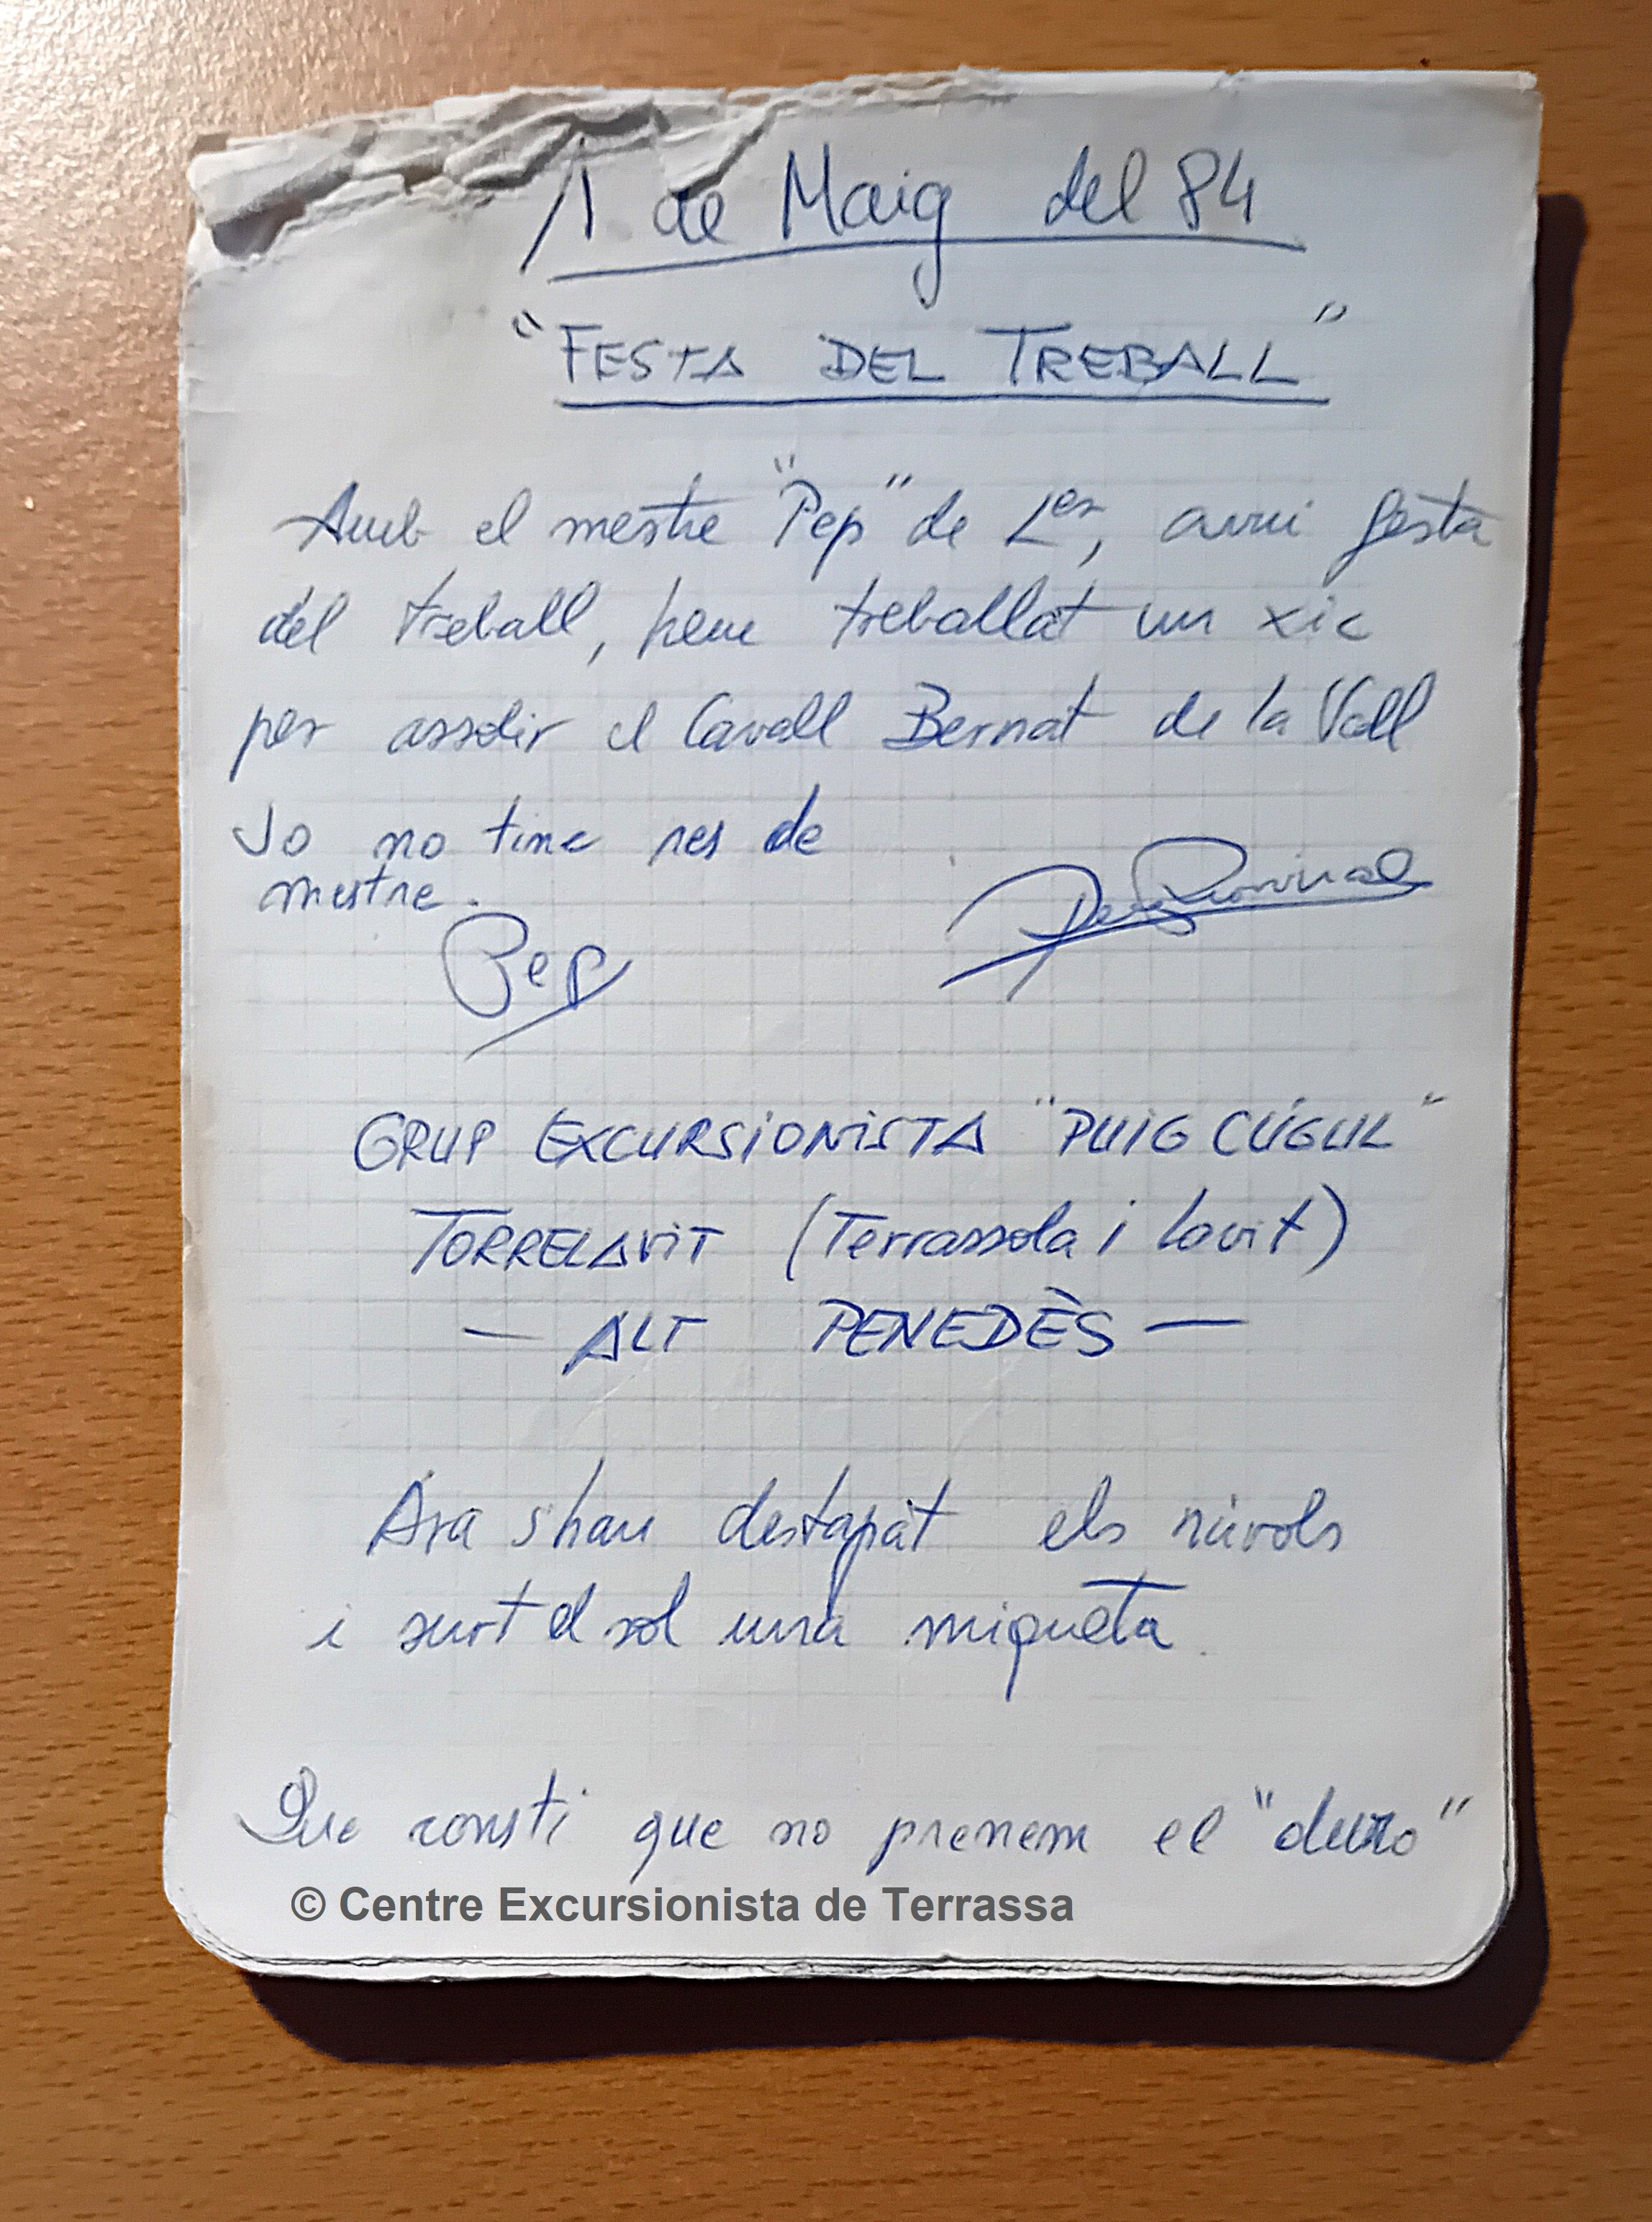 1 de Maig del 84
"FESTA DEL TREBALL"
Amb el mestre "Pep" de 1er, avui festa
del treball, hem treballat un xic
per assolir el Cavall Bernat de la Vall
Jo no tinc res de
mestre.
Pep
GRUP EXCURSIONISTA "PUIG CÚGUL"
TORRELAVIT (Terrassola i Lavit)
— ALT PENEDÈS —
Ara s'han destapat els núvols
i surt el sol una miqueta.
Que consti que no prenem el "duro"
© Centre Excursionista de Terrassa